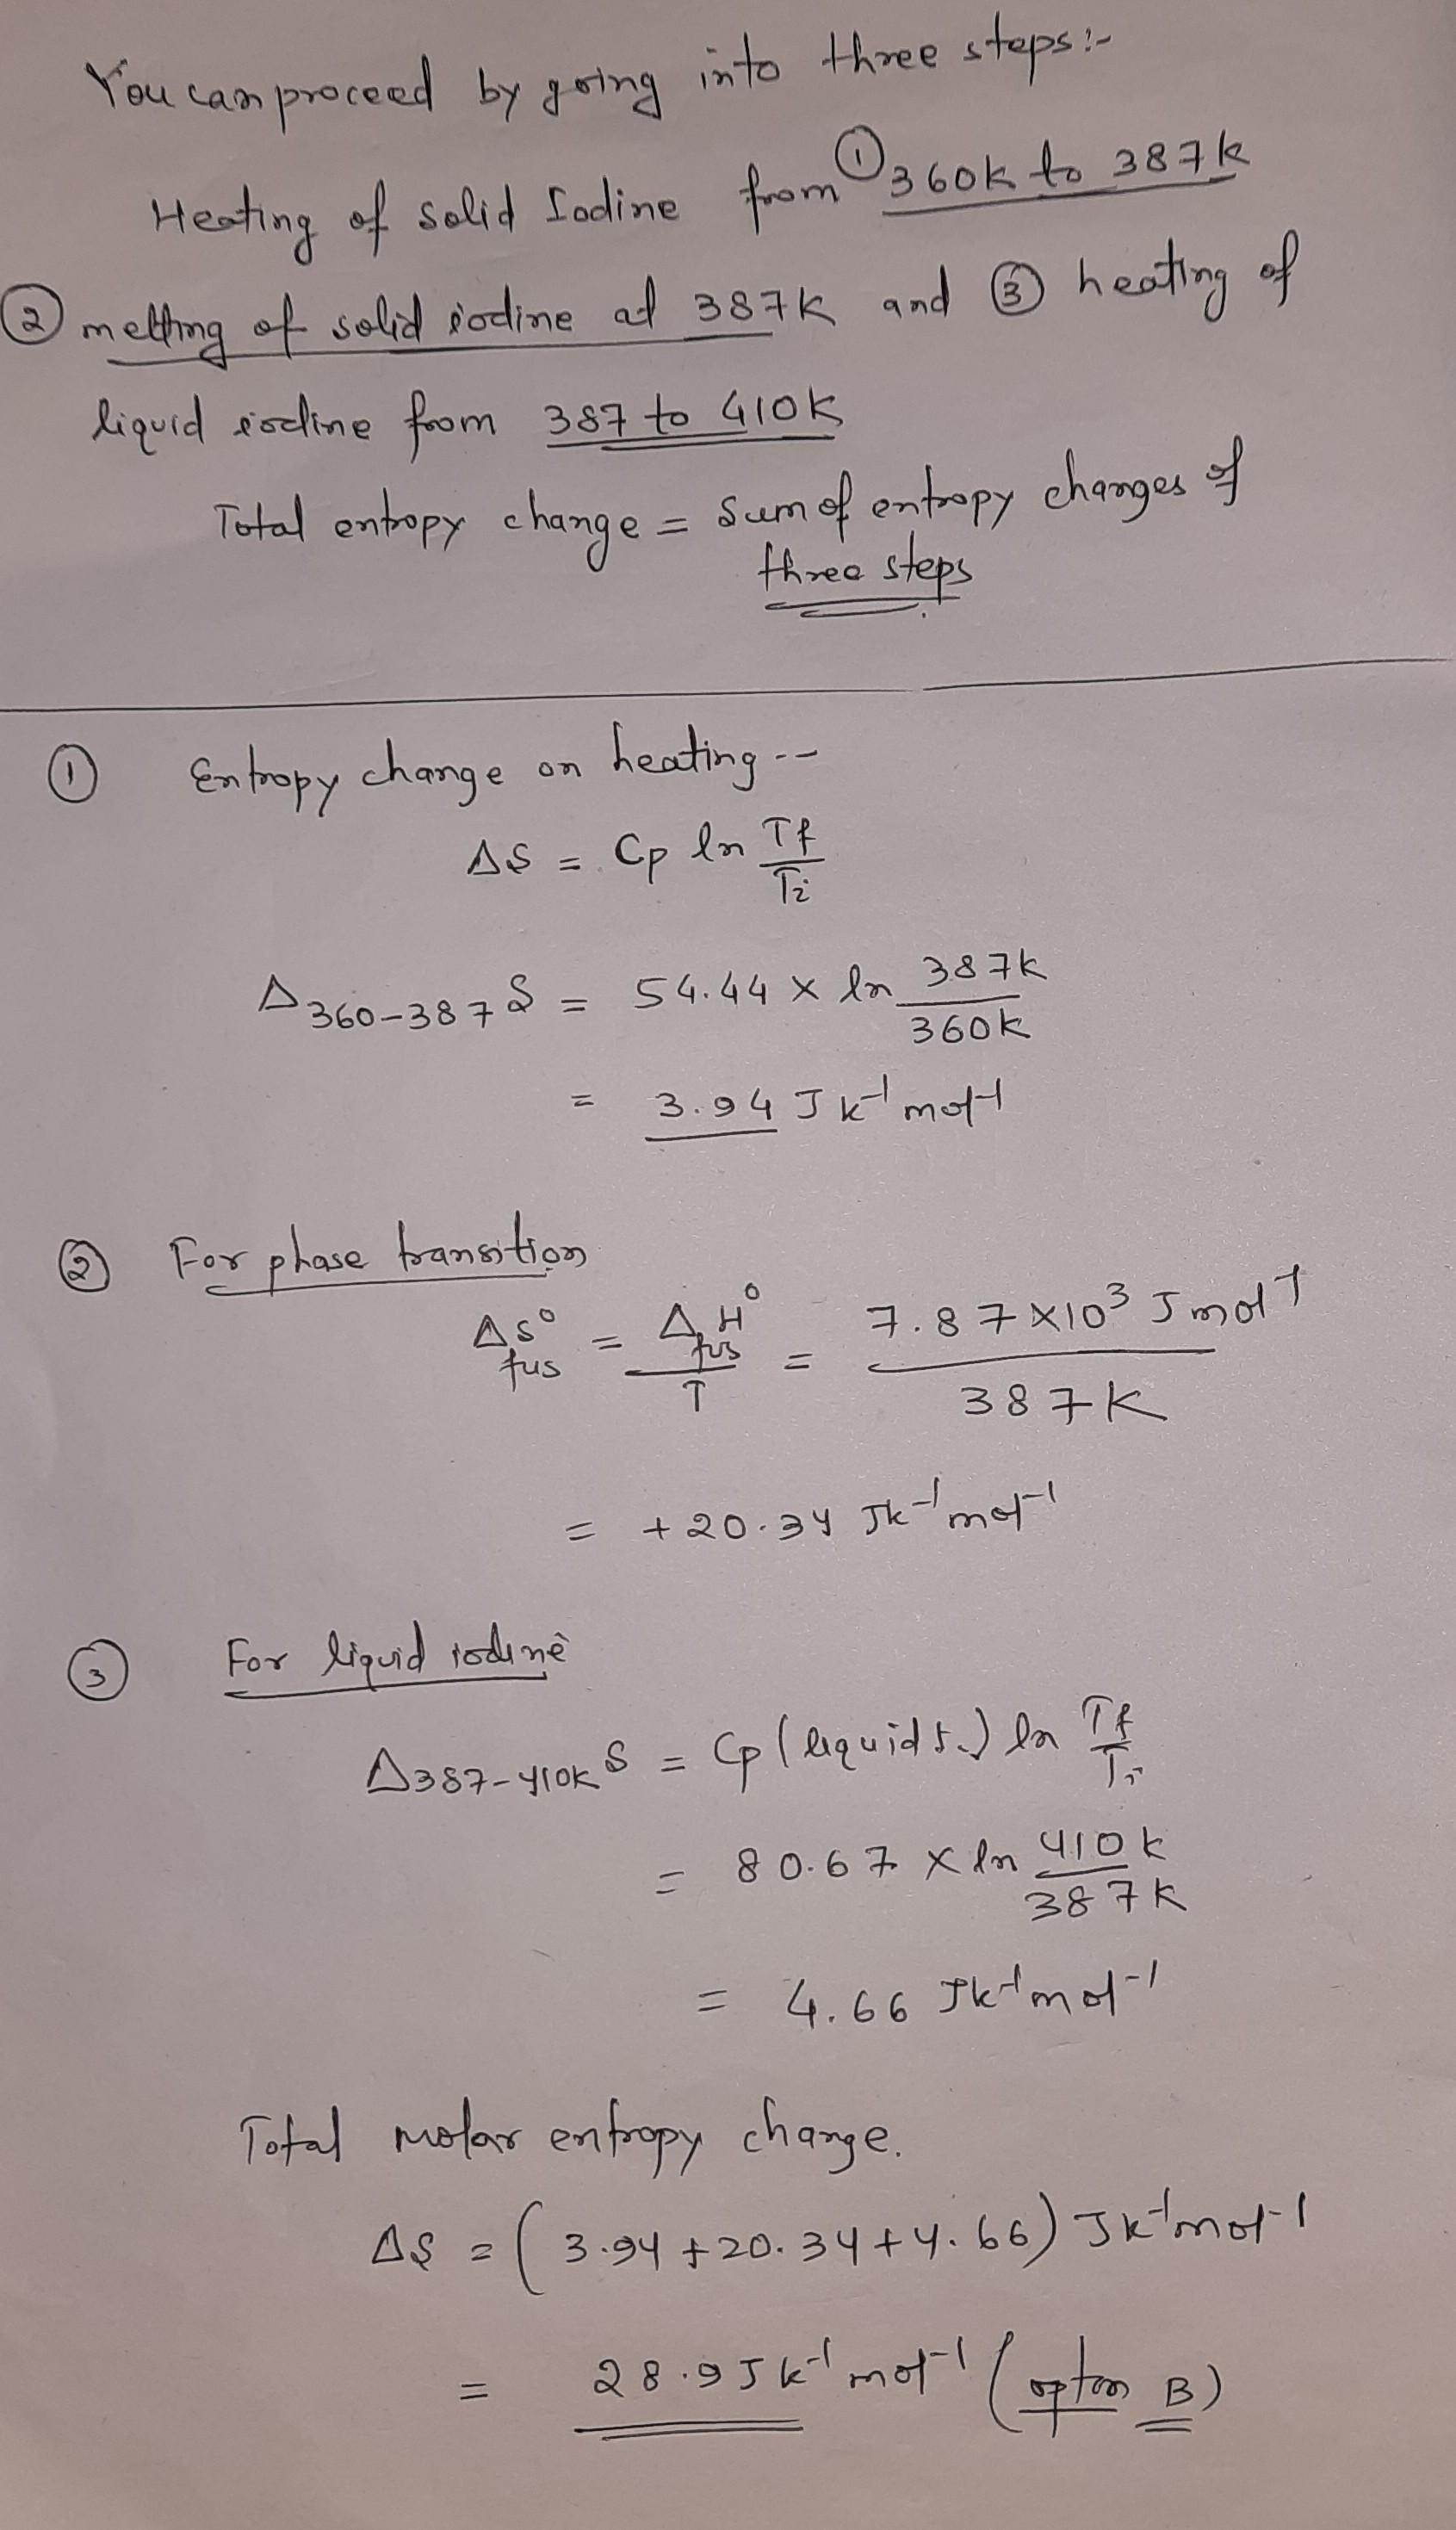 You can proceed by going into three steps:-
Heating of solid Iodine from ① 360K to 387K
② melting of solid iodine at 387K and ③ heating of
liquid iodine from 387 to 410K
Total entropy change = Sum of entropy changes of
three steps
① Entropy change on heating --
ΔS = Cp ln Tf/Ti
Δ360-387 S = 54.44 x ln 387K/360K
= 3.94 J K⁻¹ mol⁻¹
② For phase transition
ΔfusS° = ΔfusH°/T = 7.87 x10³ J mol⁻¹/387K
= +20.34 JK⁻¹ mol⁻¹
③ For liquid iodine
Δ387-410K S = Cp (liquid) ln Tf/Ti
= 80.67 x ln 410K/387K
= 4.66 JK⁻¹ mol⁻¹
Total molar entropy change.
ΔS = (3.94 + 20.34 + 4.66) JK⁻¹ mol⁻¹
= 28.9 J K⁻¹ mol⁻¹ (option B)